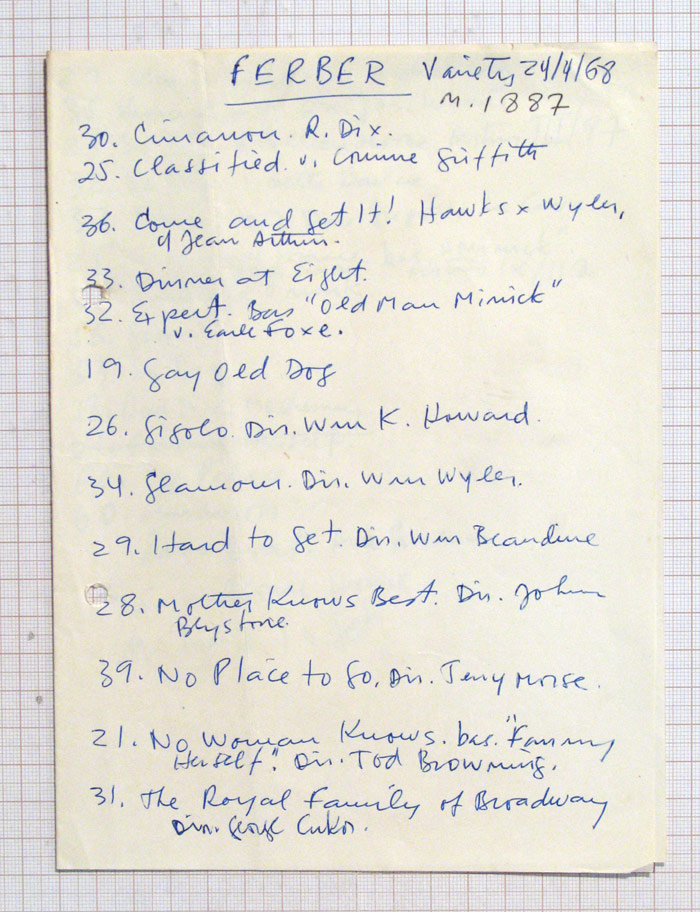 FERBER Variety, 24/4/68
M. 1887
30. Cimarron. R. Dix.
25. Classified. v. Corinne Griffith
36. Come and Get It! Hawks x Wyler,
v Jean Arthur.
33. Dinner at Eight.
32. Expert. Bas "Old Man Minick"
v. Earle Foxe.
19. Gay Old Dog
26. Gigolo. Dir. Wm K. Howard.
34. Glamour. Dir. Wm Wyler.
29. Hard to Get. Dir. Wm Beaudine
28. Mother Knows Best. Dir. John
Blystone.
39. No Place to Go, Dir. Terry Morse.
21. No Woman Knows. bas. "Fanny
Herself". Dir. Tod Browning.
31. The Royal Family of Broadway
Dir. George Cukor.